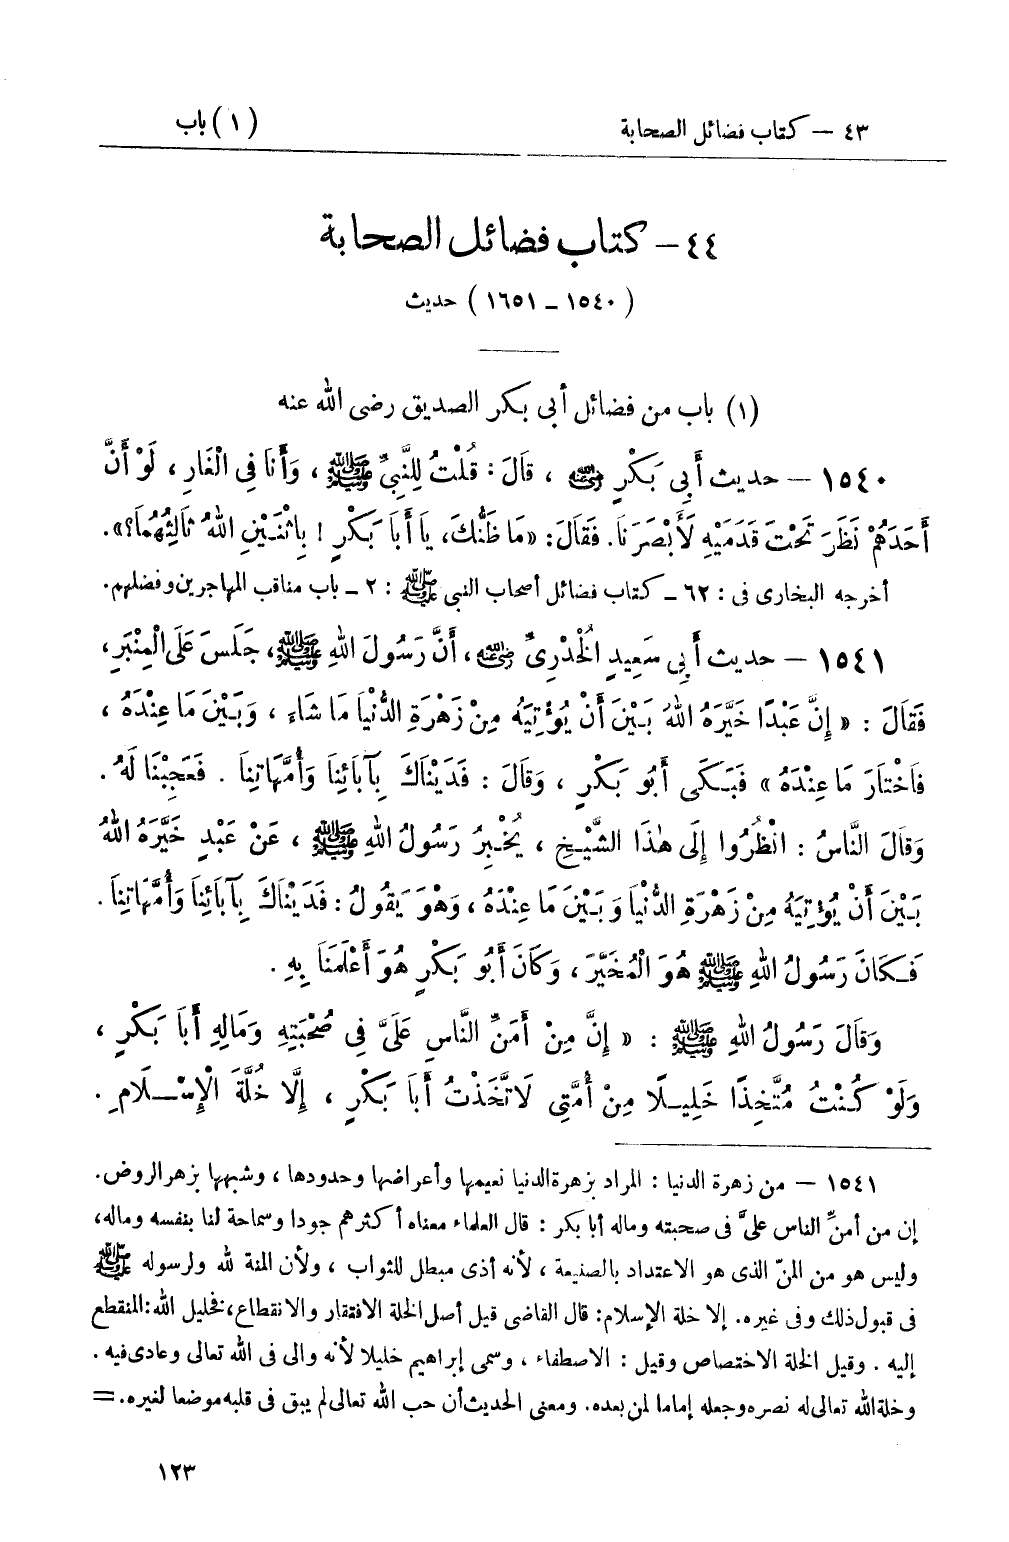 ٤٣ – كتاب فضائل الصحابة (١) باب
٤٤ – كتاب فضائل الصحابة
(١٥٤٠ – ١٦٥١) حديث
(١) باب من فضائل أبى بكر الصديق رضى الله عنه
١٥٤٠ – حديث أَبِى بَكْرٍ رضي الله عنه ، قَالَ : قُلْتُ لِلنَّبِيِّ ﷺ ، وَأَنَا فِى الْغَارِ ، لَوْ أَنَّ
أَحَدَهُمْ نَظَرَ تَحْتَ قَدَمَيْهِ لَأَبْصَرَنَا. فَقَالَ: «مَا ظَنُّكَ، يَا أَبَا بَكْرٍ ! بِاثْنَيْنِ اللهُ ثَالِثُهُمَا؟».
أخرجه البخارى فى : ٦٢ – كتاب فضائل أصحاب النبى ﷺ : ٢ – باب مناقب المهاجرين وفضلهم.
١٥٤١ – حديث أَبِى سَعِيدٍ الْخُدْرِىِّ رضي الله عنه، أَنَّ رَسُولَ اللهِ ﷺ، جَلَسَ عَلَى الْمِنْبَرِ،
فَقَالَ : « إِنَّ عَبْدًا خَيَّرَهُ اللهُ بَيْنَ أَنْ يُؤْتِيَهُ مِنْ زَهْرَةِ الدُّنْيَا مَا شَاءَ ، وَبَيْنَ مَا عِنْدَهُ ،
فَاخْتَارَ مَا عِنْدَهُ » فَبَكَى أَبُو بَكْرٍ ، وَقَالَ : فَدَيْنَاكَ بِآبَائِنَا وَأُمَّهَاتِنَا . فَعَجِبْنَا لَهُ .
وَقَالَ النَّاسُ : انْظُرُوا إِلَى هٰذَا الشَّيْخِ ، يُخْبِرُ رَسُولُ اللهِ ﷺ ، عَنْ عَبْدٍ خَيَّرَهُ اللهُ
بَيْنَ أَنْ يُؤْتِيَهُ مِنْ زَهْرَةِ الدُّنْيَا وَبَيْنَ مَا عِنْدَهُ ، وَهْوَ يَقُولُ : فَدَيْنَاكَ بِآبَائِنَا وَأُمَّهَاتِنَا .
فَكَانَ رَسُولُ اللهِ ﷺ هُوَ الْمُخَيَّرَ ، وَكَانَ أَبُو بَكْرٍ هُوَ أَعْلَمَنَا بِهِ .
وَقَالَ رَسُولُ اللهِ ﷺ : « إِنَّ مِنْ أَمَنِّ النَّاسِ عَلَىَّ فِى صُحْبَتِهِ وَمَالِهِ أَبَا بَكْرٍ ،
وَلَوْ كُنْتُ مُتَّخِذًا خَلِيلًا مِنْ أُمَّتِى لَاتَّخَذْتُ أَبَا بَكْرٍ ، إِلَّا خُلَّةَ الْإِسْلَامِ .
١٥٤١ – من زهرة الدنيا : المراد بزهرة الدنيا نعيمها وأعراضها وحدودها ، وشبهها بزهر الروض.
إن من أمنِّ الناس علىَّ فى صحبته وماله أبا بكر : قال العلماء معناه أكثرهم جودا وسماحة لنا بنفسه وماله،
وليس هو من المنّ الذى هو الاعتداد بالصنيعة ، لأنه أذى مبطل للثواب ، ولأن المنة لله ولرسوله ﷺ
فى قبول ذلك وفى غيره. إلا خلة الإسلام: قال القاضى قيل أصل الخلة الافتقار والانقطاع، فخليل الله: المنقطع
إليه . وقيل الخلة الاختصاص وقيل : الاصطفاء ، وسمى إبراهيم خليلا لأنه والى فى الله تعالى وعادى فيه .
وخلة الله تعالى له نصره وجعله إماما لمن بعده. ومعنى الحديث أن حب الله تعالى لم يبق فى قلبه موضعا لغيره. =
١٢٣